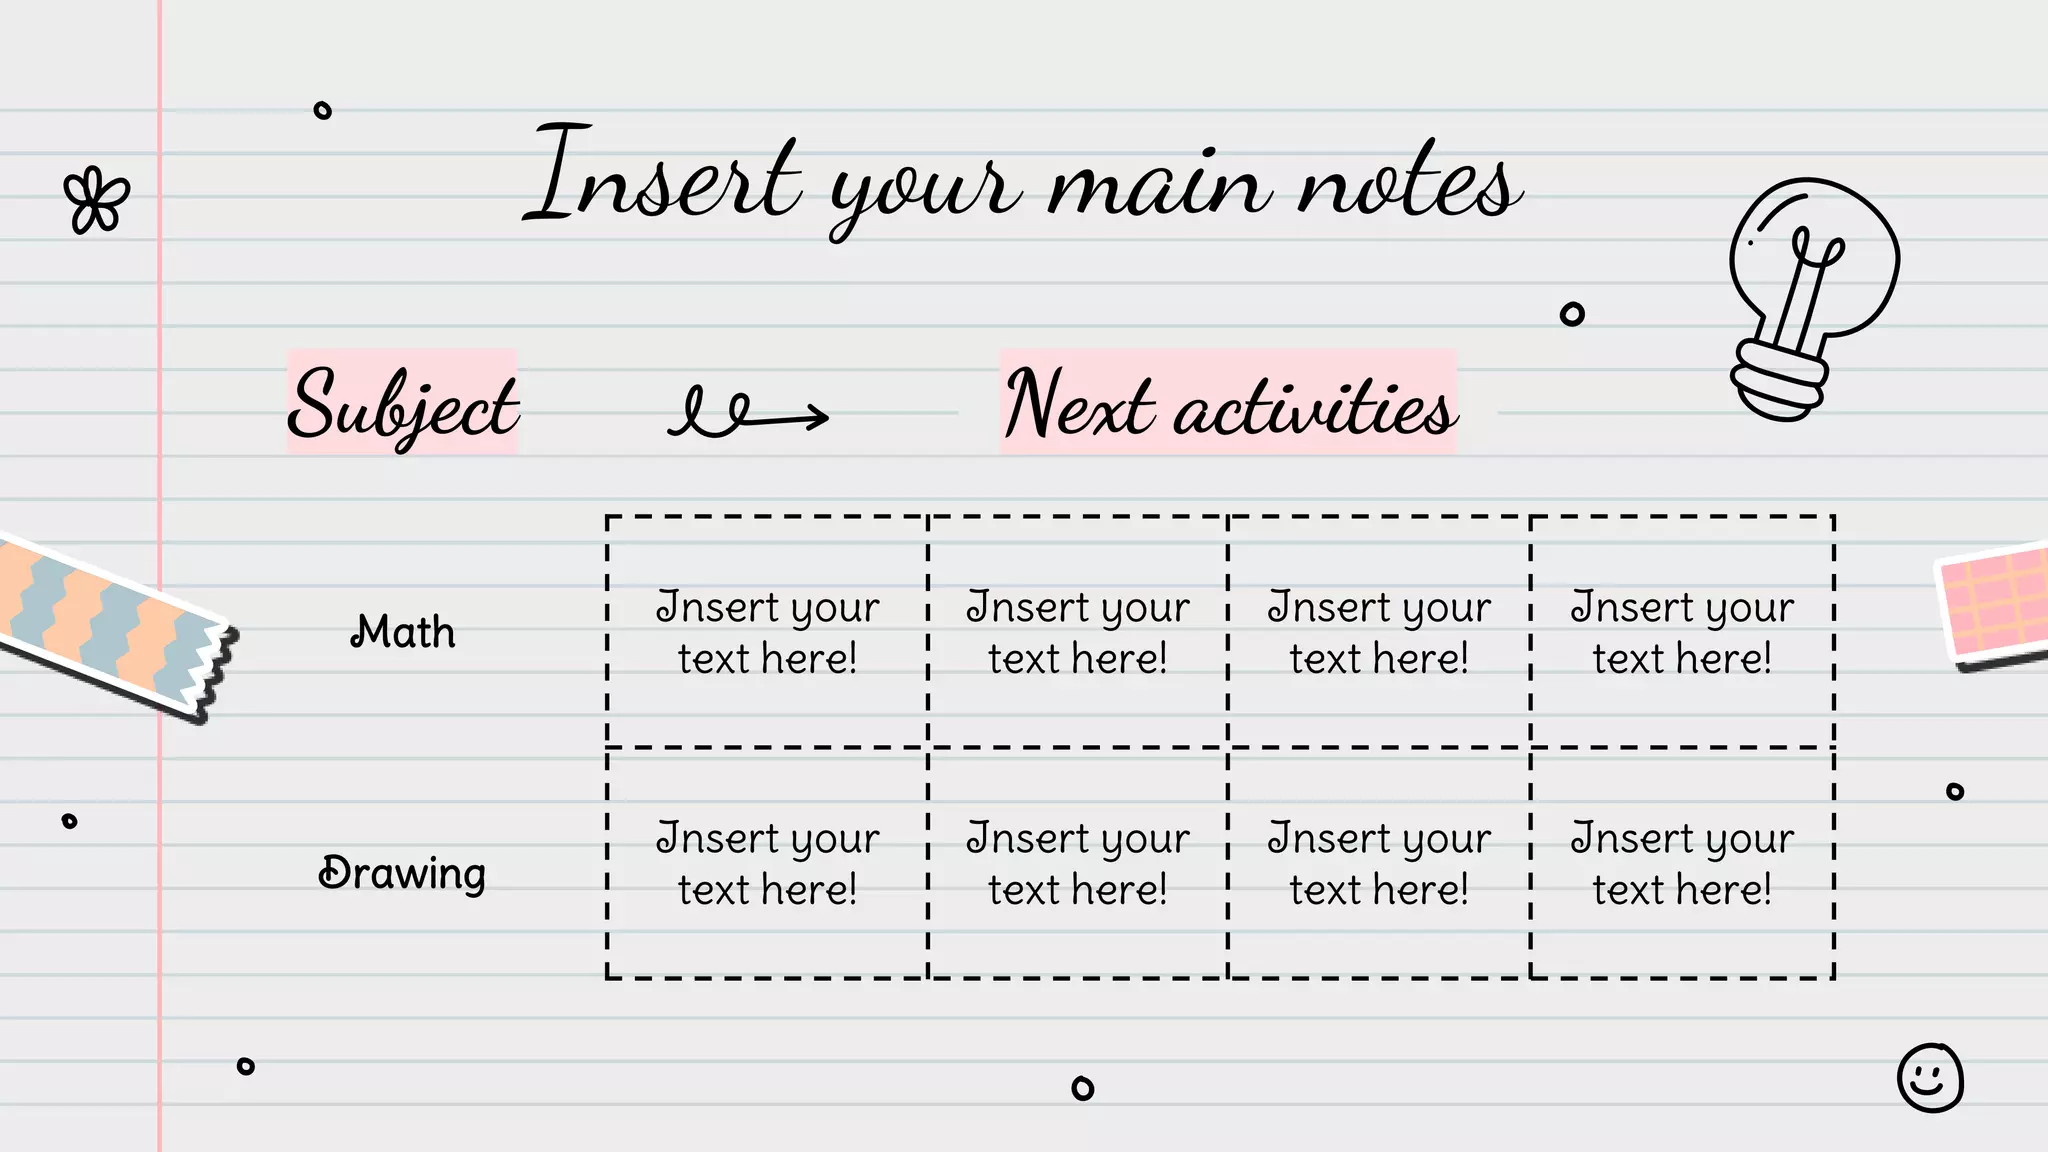 Insert your main notes
Subject
Next activities
Math
Insert your
text here!
Insert your
text here!
Insert your
text here!
Insert your
text here!
Drawing
Insert your
text here!
Insert your
text here!
Insert your
text here!
Insert your
text here!